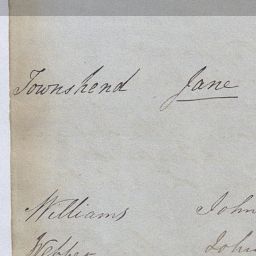 Townshend Jane
Williams John
Webber John